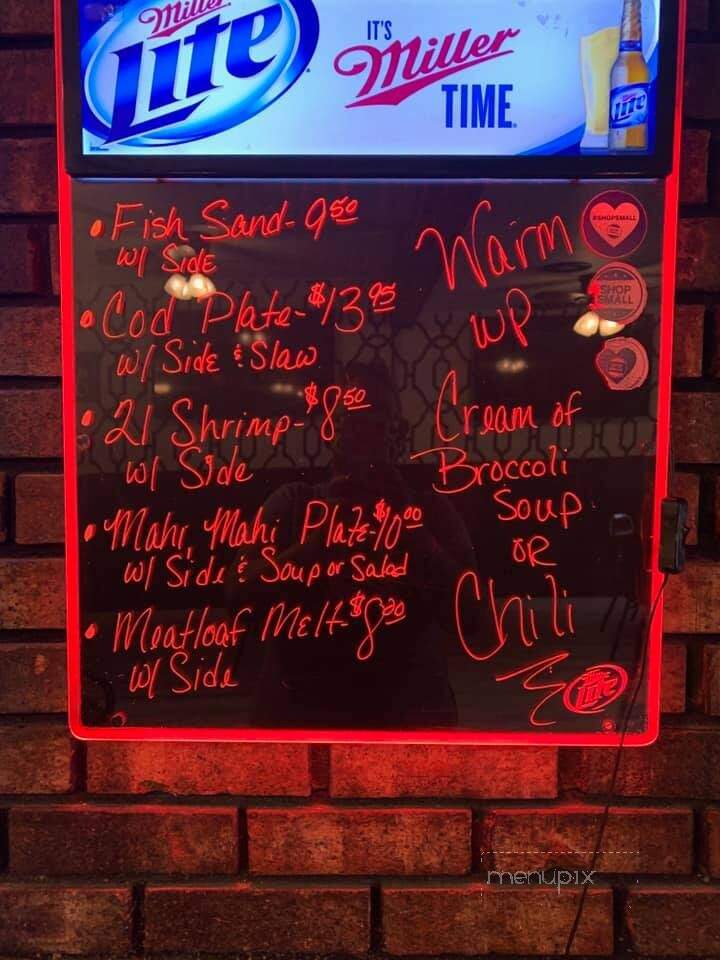 Miller
Lite
IT'S
Miller
TIME
Lite
• Fish Sand- 9 50
w/ Side
• Cod Plate- $13 95
w/ Side & Slaw
• 21 Shrimp- $8 50
w/ Side
• Mahi, Mahi Plate- $10 00
w/ Side & Soup or Salad
• Meatloaf Melt- $8 00
w/ Side
Warm
up
Cream of
Broccoli
Soup
OR
Chili
Lite
#SHOPSMALL
SHOP
SMALL
menupix